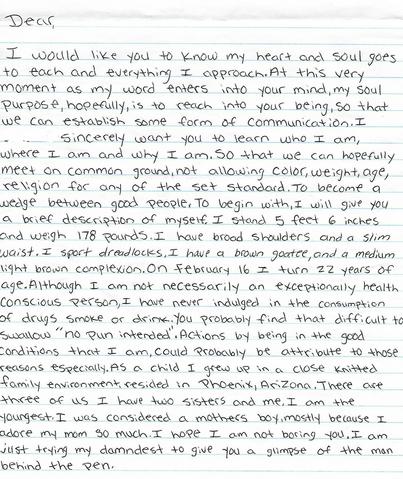 Dear,
I would like you to know my heart and soul goes
to each and everything I approach. At this very
moment as my word enters into your mind, my soul
purpose, hopefully, is to reach into your being, so that
we can establish some form of communication. I
sincerely want you to learn who I am,
where I am and why I am. So that we can hopefully
meet on common ground, not allowing color, weight, age,
religion for any of the set standard. To become a
wedge between good people. To begin with, I will give you
a brief description of myself. I stand 5 feet 6 inches
and weigh 178 pounds. I have broad shoulders and a slim
waist. I sport dreadlocks, I have a brown goatee, and a medium
light brown complexion. On February 16 I turn 22 years of
age. Although I am not necessarily an exceptionally health
conscious person, I have never indulged in the consumption
of drugs smoke or drink. You probably find that difficult to
swallow "no pun intended". Actions by being in the good
conditions that I am, could probably be attribute to those
reasons especially. As a child I grew up in a close knitted
family environment, resided in Phoenix, Arizona. There are
three of us I have two sisters and me. I am the
youngest. I was considered a mothers boy, mostly because I
adore my mom so much. I hope I am not boring you, I am
just trying my damndest to give you a glimpse of the man
behind the pen.